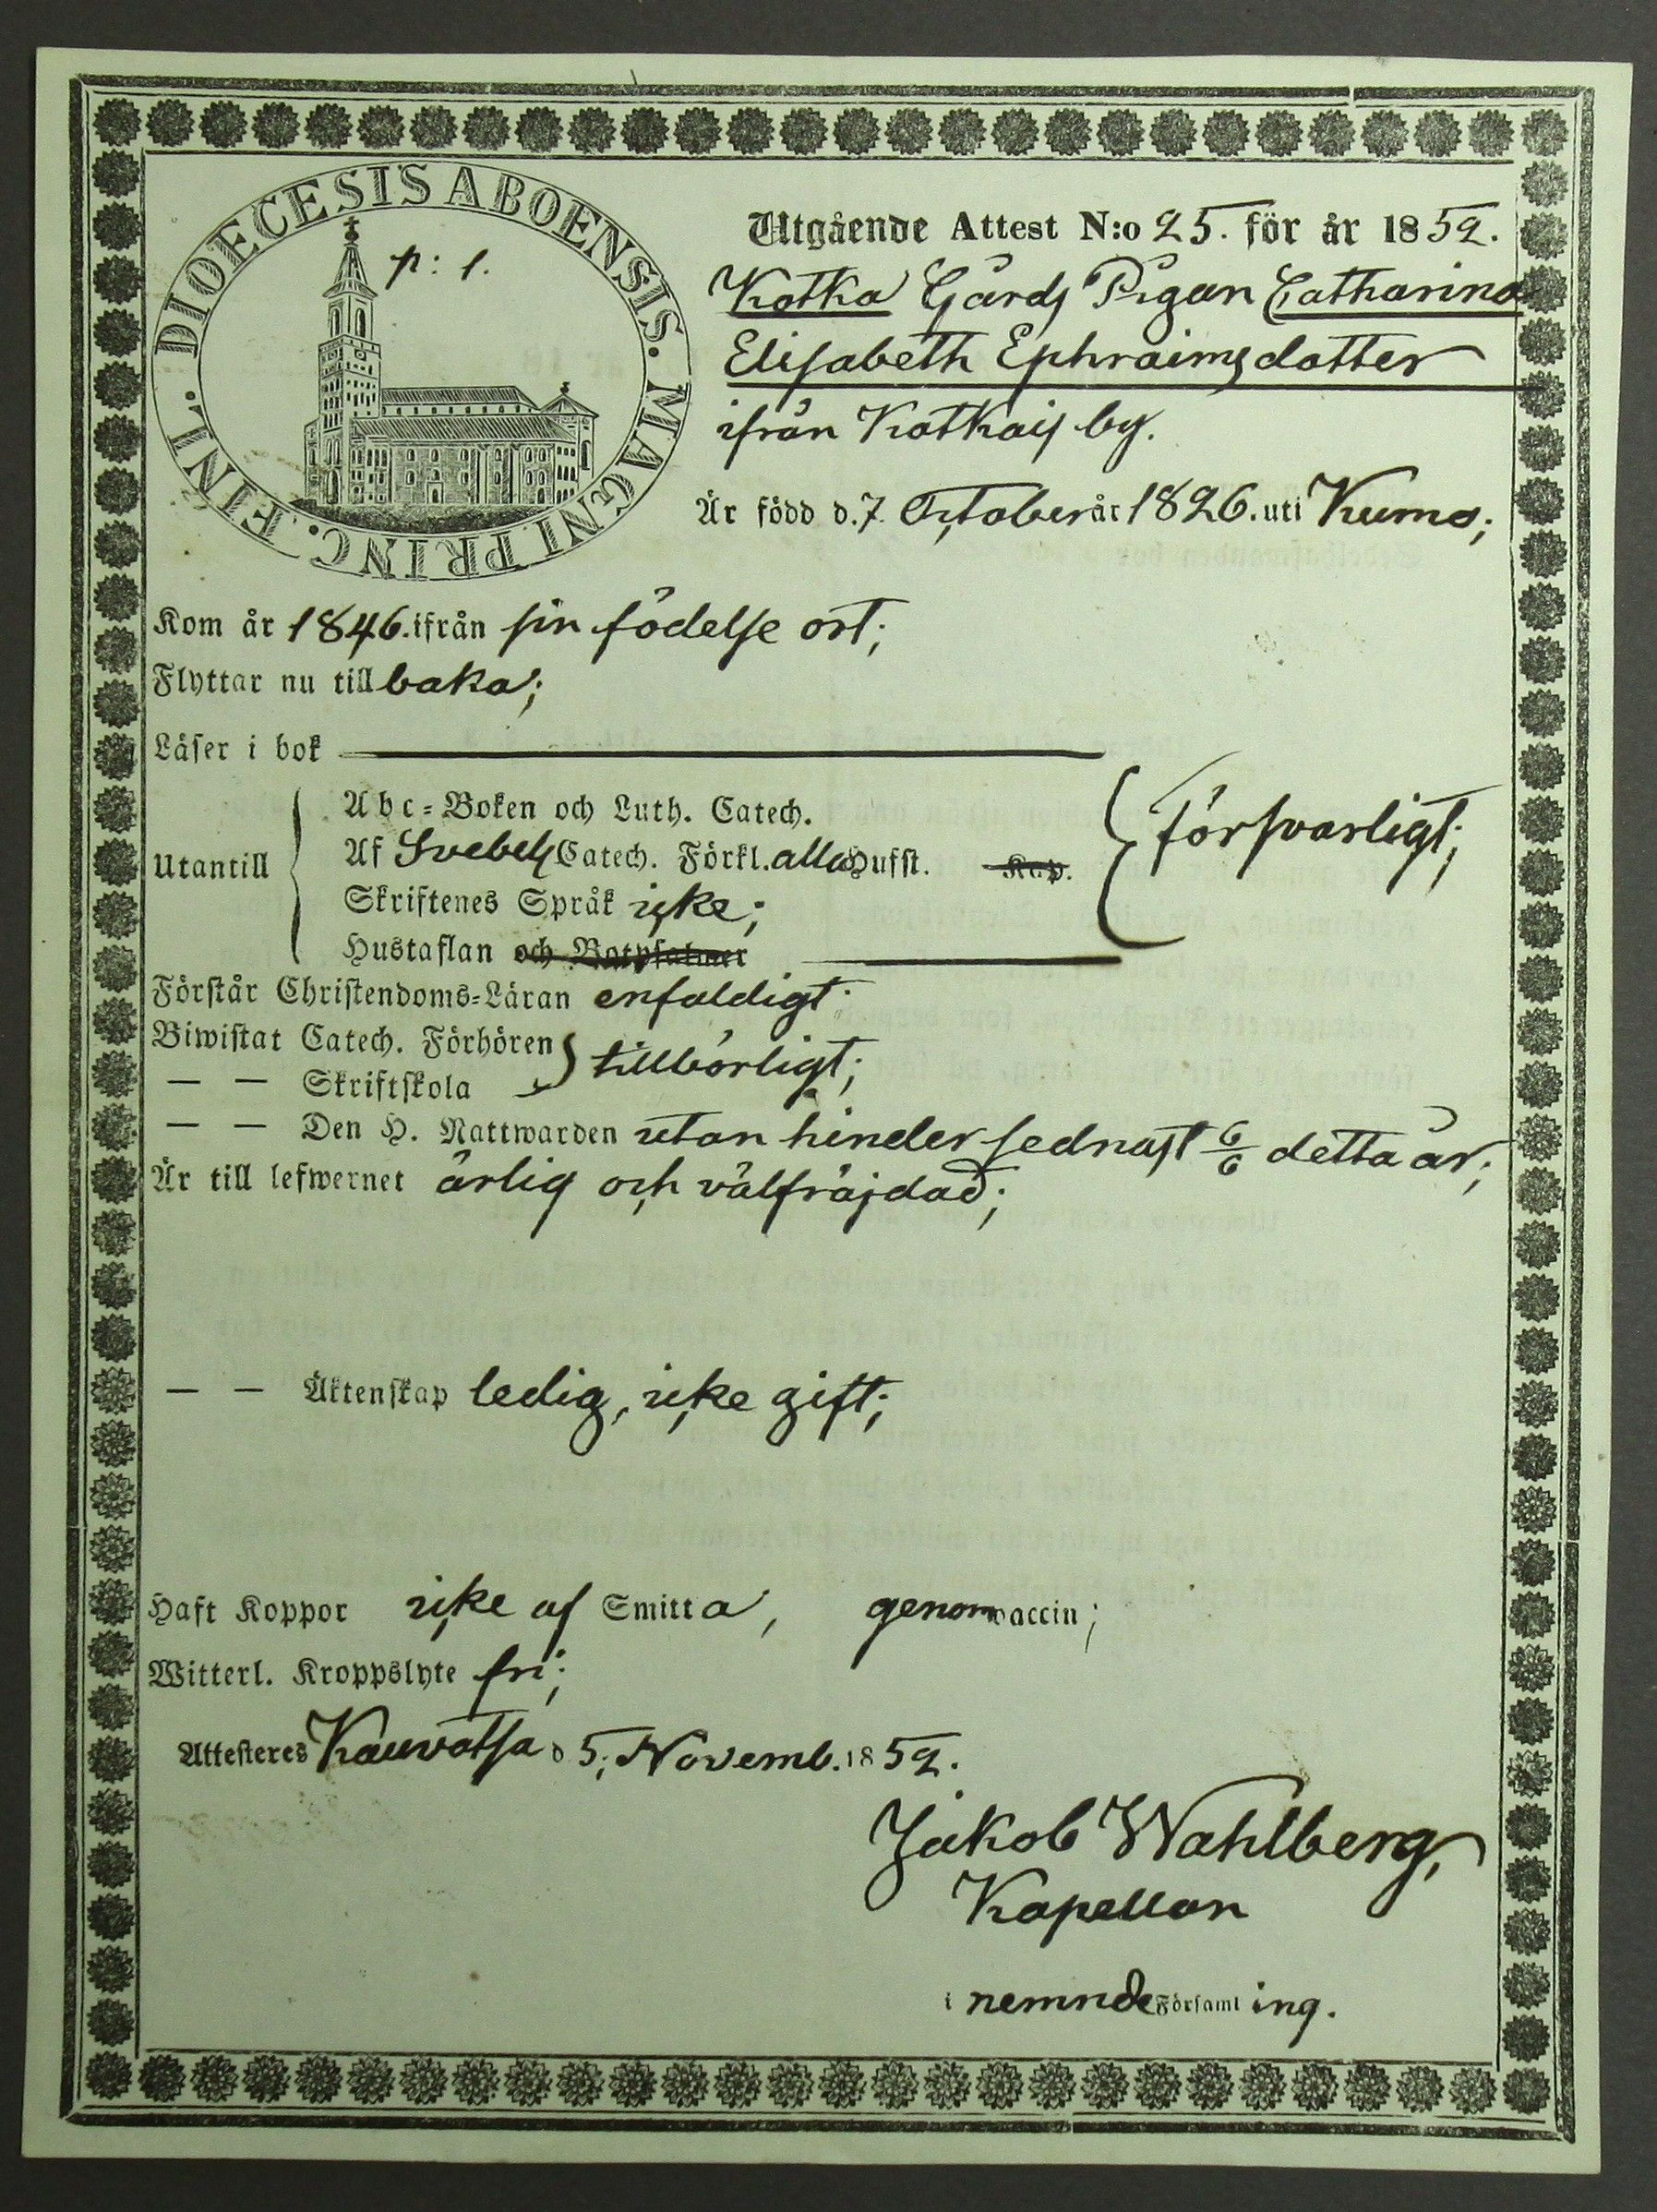 DIOECESIS ABOENSIS. MAGNI PRINC. FINL.
p: 1.
Utgående Attest N:o 25. för år 1852.
Kotka Gårds Pigan Catharina
Elisabeth Ephraimsdotter
ifrån Kotkais by.
Är född d. 7. October år 1826. uti Kumo;
Kom år 1846. ifrån sin födelse ort;
Flyttar nu till baka;
Läser i bok
Abc-Boken och Luth. Catech.
Utantill
Af Svebels Catech. Förkl. alla Hufst. Kap.
försvarligt;
Skriftenes Språk icke;
Hustaflan och Botpsalmer
Förstår Christendoms-Läran enfaldigt
Biwistat Catech. Förhören
— — Skriftskola
tillbörligt;
— — Den H. Nattwarden utan hinder sednast 6/6 detta år;
Är till lefwernet ärlig och välfräjdad;
— — Äktenskap ledig, icke gift;
Haft Koppor icke af Smitta, genom vaccin;
Witterl. Kroppslyte fri;
Attesteres Kauvatsa d 5. Novemb. 1852.
Jakob Wahlberg,
Kapellan
i nemnde Församling.